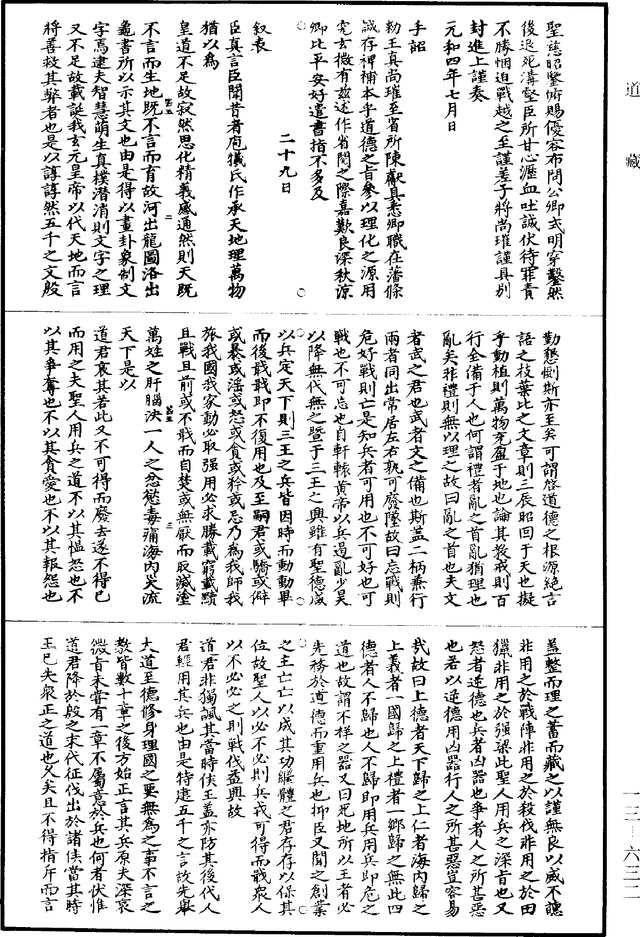 道藏
聖慈昭鑒俯賜優容布問公卿式明穿鑿然
後退死溝壑臣所甘心瀝血吐誠伏待罪責
不勝悃迫戰越之至謹差子將尚璀謹具別
封進上謹奏
元和四年七月日
手詔
勑王真尚璀至省所陳獻具悉卿職在藩條
誠存裨補本乎道德之旨參以理化之源用
究玄微有兹述作省閱之際嘉歎良深秋涼
卿比平安好遣書指不多及
二十九日
叙表
臣真言臣聞昔者庖犧氏作承天地理萬物
猶以為
皇道不足故寂然思化精義感通然則天既
不言而生地既不言而育故河出龍圖洛出
龜書所以示其文也由是得以畫卦象制文
字焉逮夫智慧萌生真樸潛消則文字之理
又不足故載誕我玄元皇帝以代天地而言
將善救其弊者也是以諄諄然五千之文殷
勤懇惻斯亦至矣可謂啓道德之根源絶言
語之枝葉比之文章則三辰昭回于天也擬
乎動植則萬物充盈于地也論其教戒則百
行全備于人也何謂禮者亂之首亂猶理也
亂矣非禮則無以理之故曰亂之首也夫文
者武之君也武者文之備也斯蓋二柄兼行
兩者同出常居左右孰可廢墜故曰忘戰則
危好戰則亡是知兵者可用也不可好也可
戰也不可忘也自軒轅黃帝以兵遏亂少昊
以降無代無之暨于三王之興雖有聖德咸
以兵定天下則三王之兵皆因時而動動畢
而後戢戢即不復用也及至嗣君或驕或僻
或暴或淫或怒或貪或矜或忌乃為我師我
旅我國我家動必取强用必求勝載窮載黷
且戰且前或不戢而自焚或無厭而取滅塗
萬姓之肝腦決一人之忿慾毒痛海內災流
天下是以
道君哀其若此又不可得而廢去遂不得已
而用之夫聖人用兵之道不以其慍怨也不
以其爭奪也不以其貪愛也不以其報怨也
蓋整而理之蓄而藏之以謹無良以威不譓
非用之於戰陣非用之於殺伐非用之於田
獵非用之於强梁此聖人用兵之深旨也又
怒者逆德也兵者凶器也爭者人之所甚惡
也若以逆德用凶器行人之所甚惡豈容易
哉故曰上德者天下歸之上仁者海內歸之
上義者一國歸之上禮者一鄉歸之無此四
德者人不歸也人不歸即用兵用兵即危之
道也故謂不祥之器又曰死地所以王者必
先務於道德而重用兵也抑臣又聞之創業
之主亡亡以成其功繼體之君存存以保其
位故聖人以必不必則兵或可得而戢衆人
以不必必之則戰伐益興故
道君非獨諷其當時侯王蓋亦防其後代人
君經用其兵也由是特建五千之言故先舉
大道至德修身理國之要無為之事不言之
教皆數十章之後方始正言其兵原夫深衷
微旨未嘗有一章不屬意於兵也何者伏惟
道君降於殷之末代征伐出於諸侯當其時
王已失衆正之道也久矣且不得指斥而言
一三—六三二